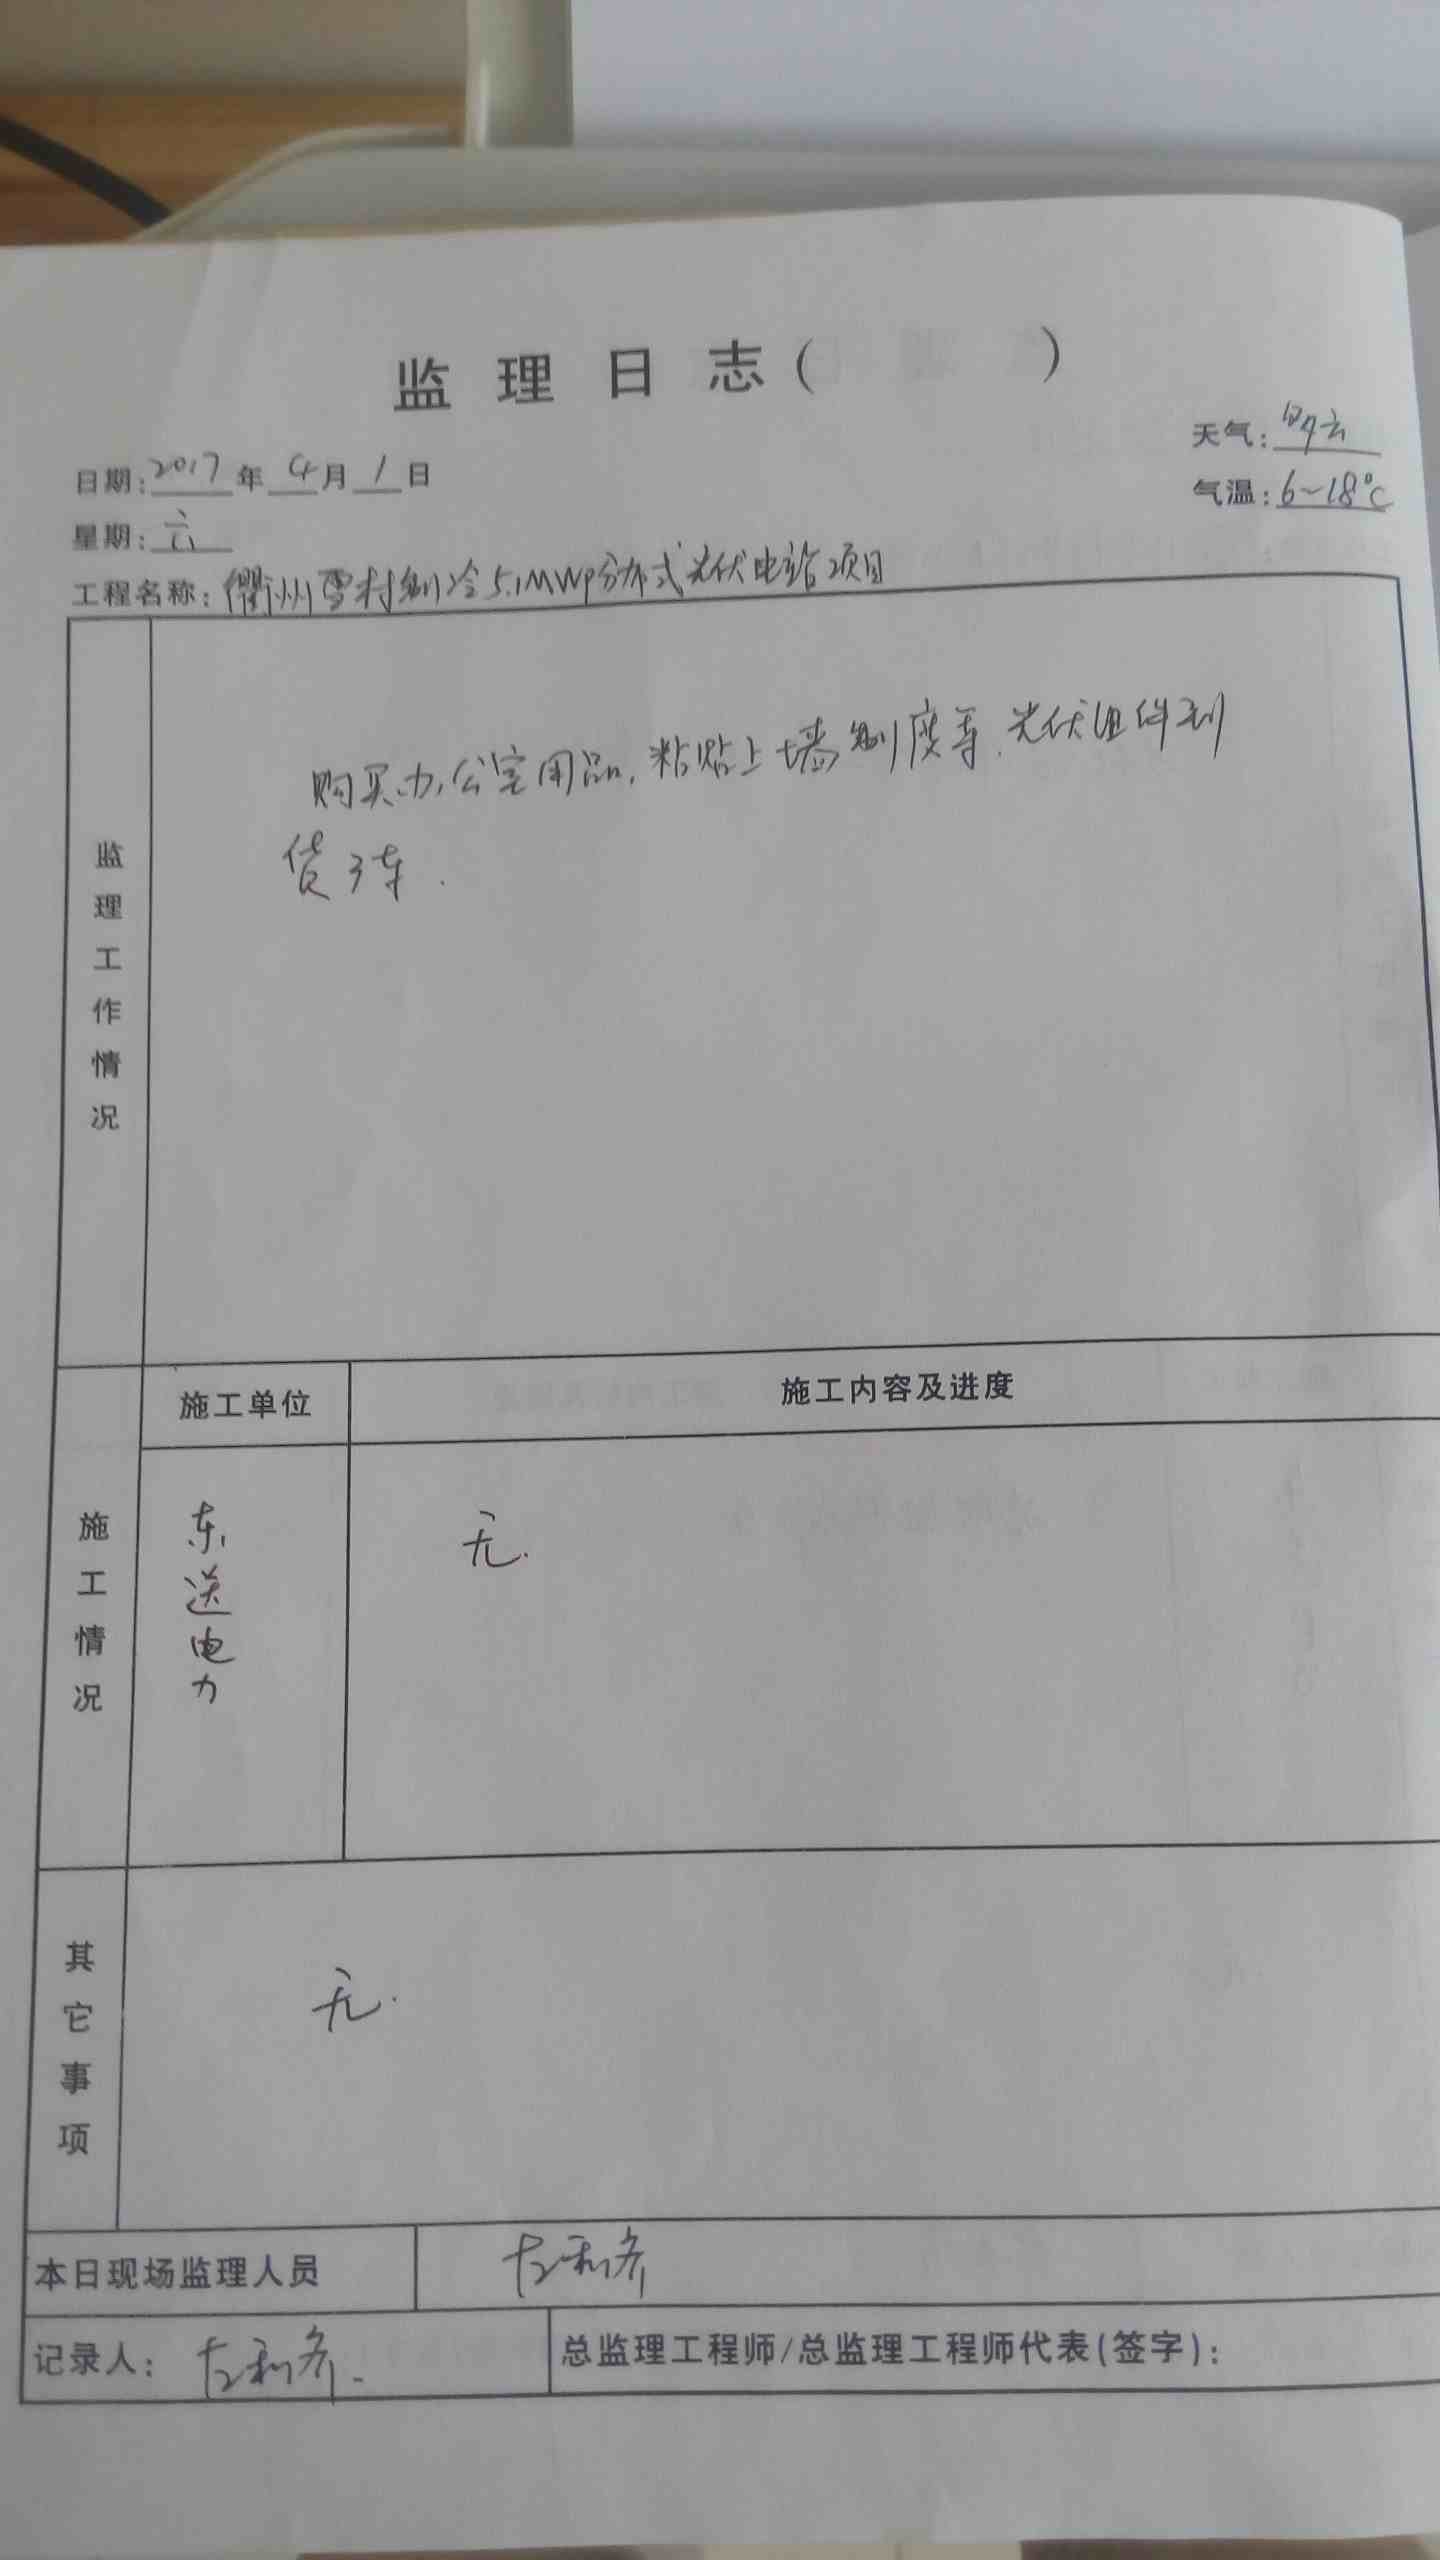 监理日志（ ）
天气：
日期：2017年4月1日
气温：6~18℃
星期：六
工程名称：衢州雪村制冷5.1MWp分布式光伏电站项目
监理工作情况
购买办公室用品，粘贴上墙制度等.光伏组件到
货3车.
施工单位
施工内容及进度
施工情况
东送电力
无.
其它事项
无.
本日现场监理人员
记录人：
总监理工程师/总监理工程师代表(签字)：